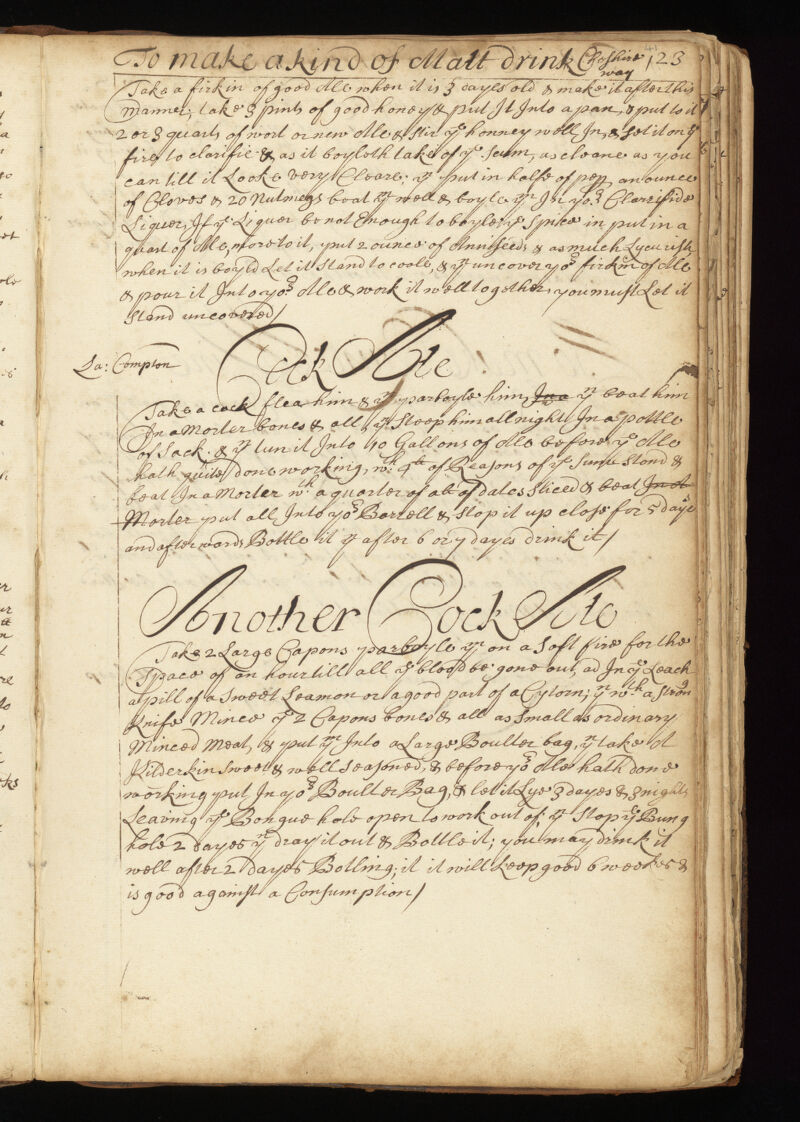 To make a kind of Malt drink Cheshire way 123
Take a firkin of good Ale when it is 3 dayes old & make it after this
manner; take 3 pints of good honey & put It Into a pan, & put to it
2 or 3 quarts of wort or new Ale & stir ye honney well In, & set it on ye
fire to clarifie & as it boyleth take of ye scum, as cleane as you
can till it Looke very Cleare; yn put in halfe of pep, an ounce
of Cloves & 20 Nutmegs beat ym well & boyle ym In yor Clarrifide
Liquer, If ye Liquer be not Enough to boyle ye Spice in put in a
quart of Ale, more to it, put 2 ounces of Anniseeds & as much Lycurish
when it is boyld Let it Stand to coole, & yn uncover yor firkin of Ale
& pour it Into yor Ale & work it well together, you must Let it
Stand uncovered /
La: Compton
Cock Ale
Take a cock flea him & yn parboyle him, yn beat him
In a Morter bones & all, yn Steep him all night In a pottle
of Sack. & yn tun it Into 10 Gallons of Ale before ye Ale
hath quite done working, wth 4lb of Reasons of ye Sunn Stond &
beat In a Morter wth a quarter of a lb of dates Sliced & beat In a
Morter put all Into yor Barrell & Stop it up close for 5 days
and afterwards Bottle it yn after 6 or 7 dayes drink it /
Another Cock Ale
Take 2 Large Capons parboyle ym on a Soft fire for the
Space of an hour till all ye blood be gone out, ad In ye Leach
a pill of a Sweet Leamon or a good part of a Cytorn; yn wth a Strong
Knife Mince ye 2 Capons bones & all as Small as ordinary
Minced Meat, & put ym Into a Large Boulter bag, yn take A
Kilderkin Sweet & well Seasoned, & before yor Ale hath done
working put In yor Boulter Bag, & let it Lye 3 dayes & 3 nights
Leavnig ye Bongue hole open to work out of; yn Stop ye Bung
hole 2 dayes yn dray it out & Bottle it; you may drink it
well after 2 dayes Botling; it it will keep good 6 weekes &
is good against a Consumption /